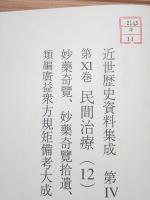 近世歴史資料集成 第Ⅳ
第Ⅺ巻 民間治療(12)
妙藥奇覽、妙藥奇覽拾遺、
類編廣益衆方規矩備考大成
11